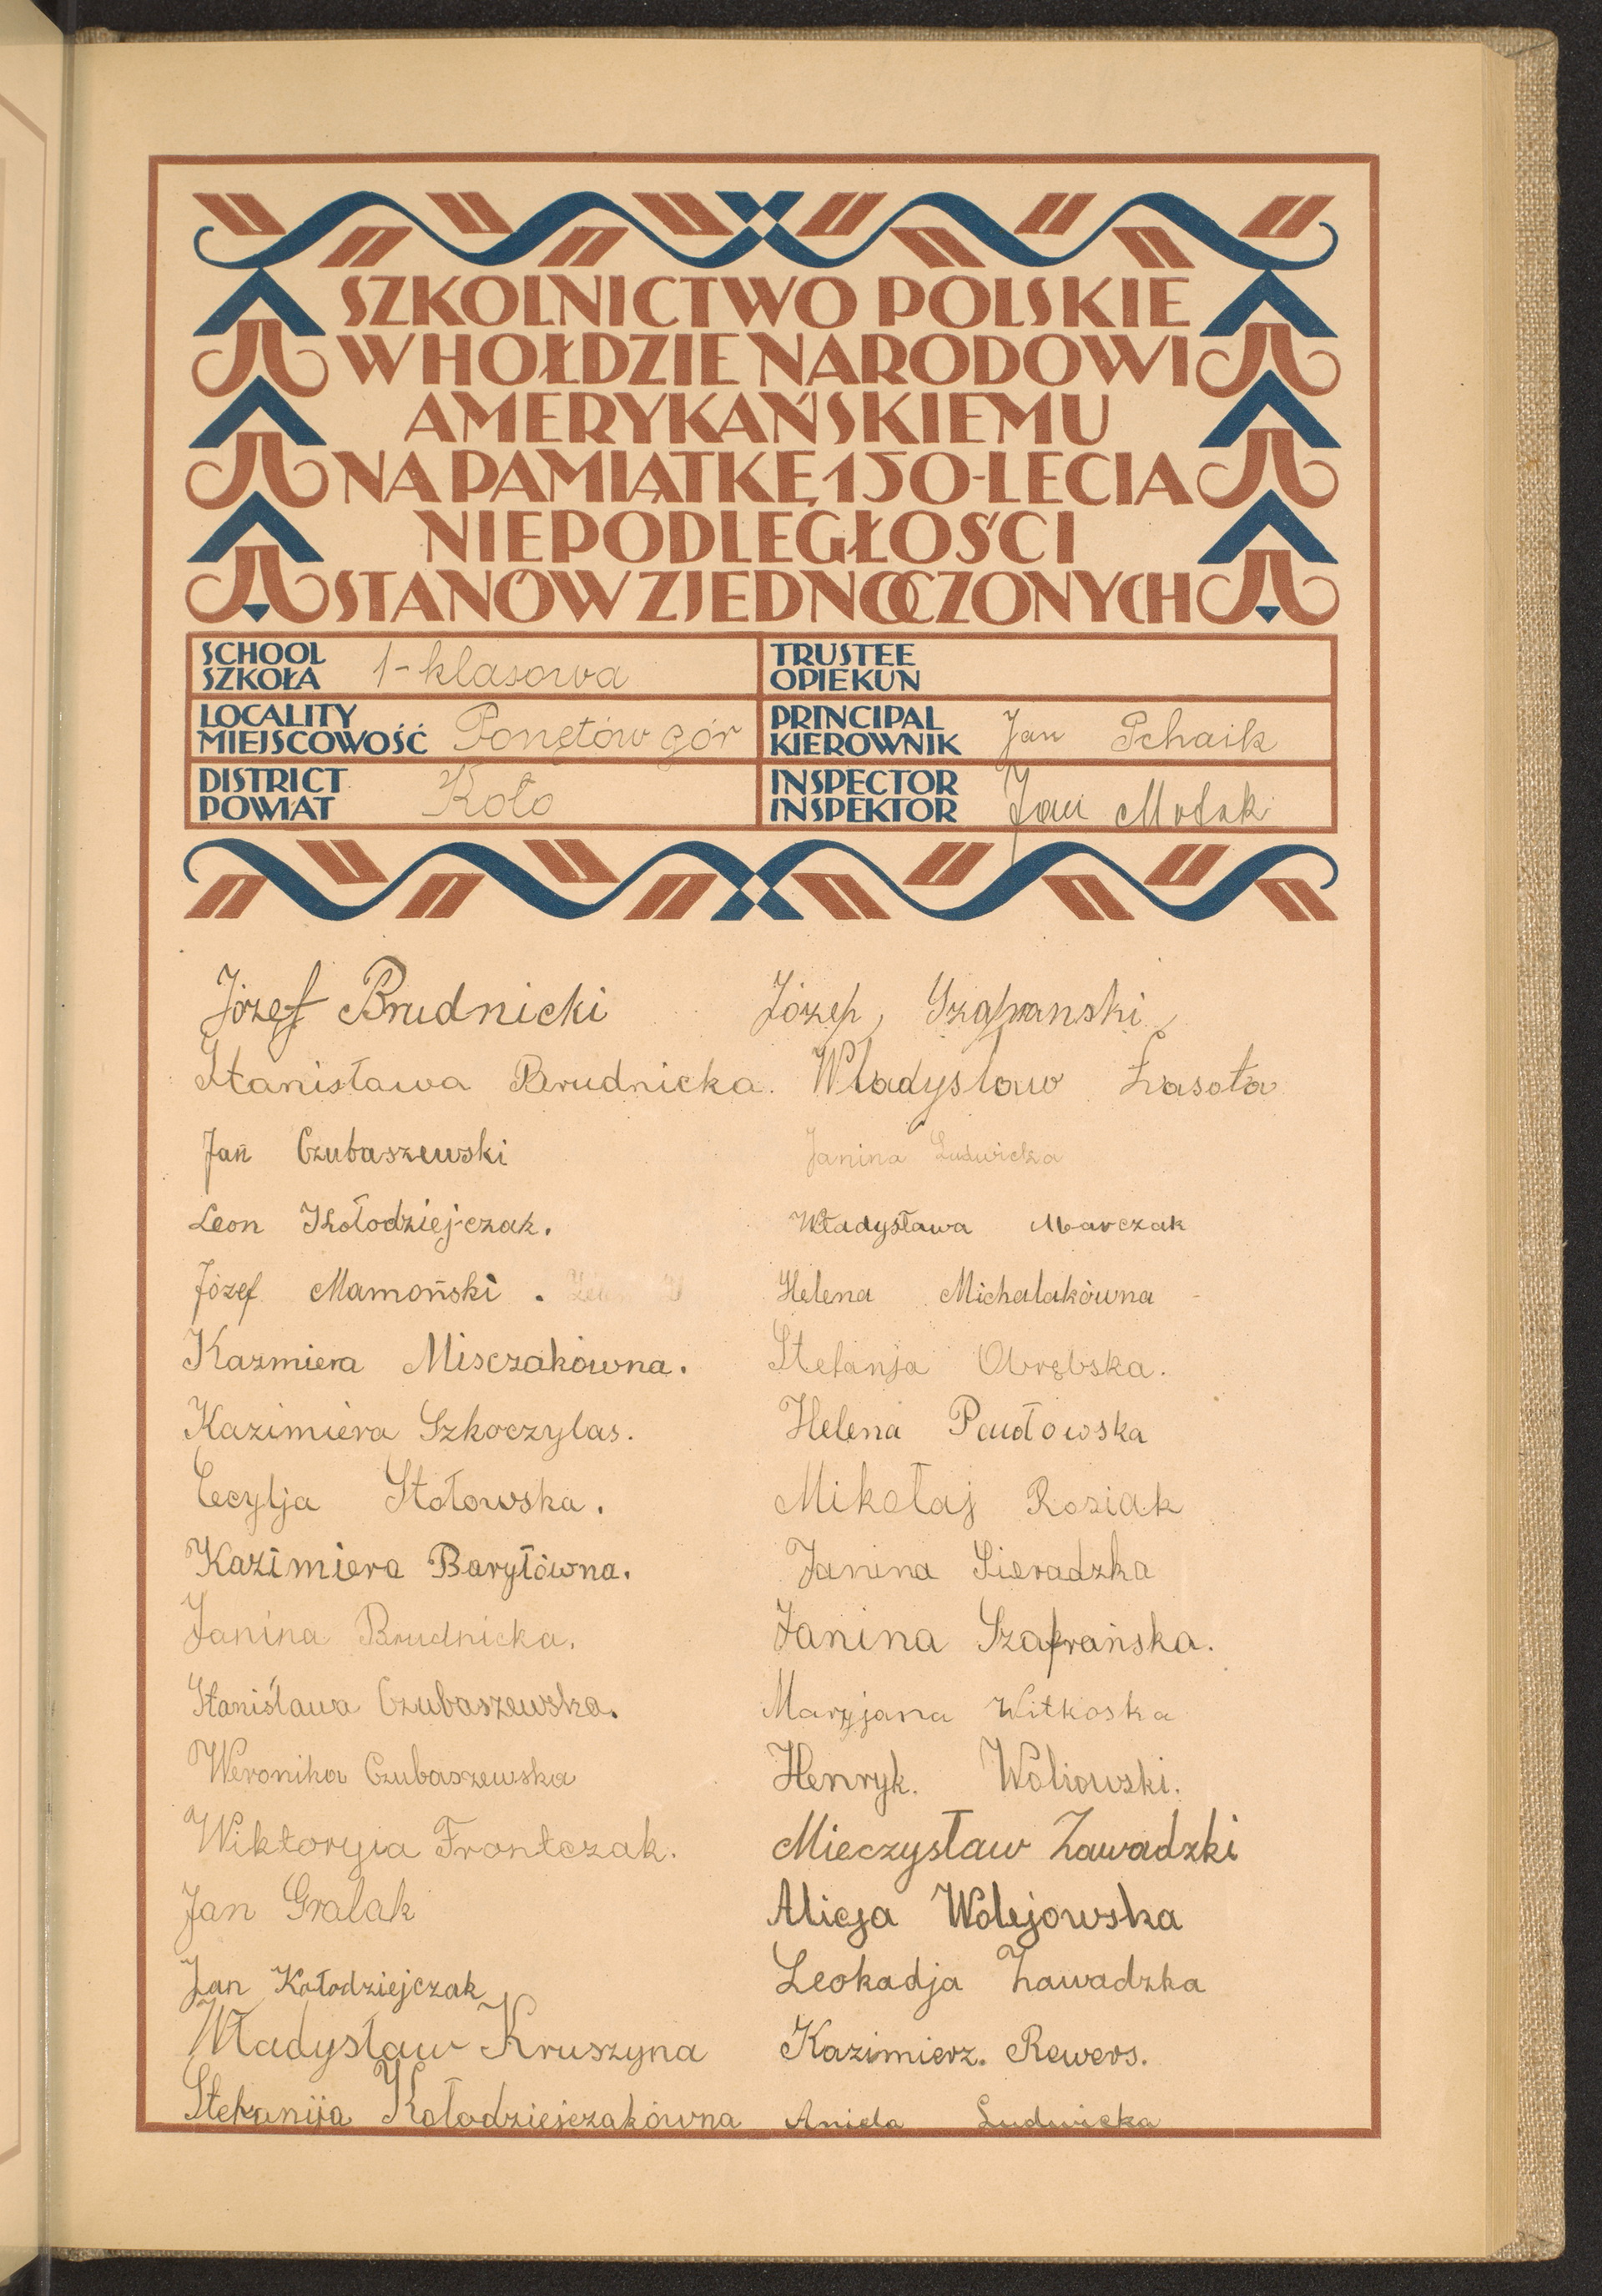 SZKOLNICTWO POLSKIE
W HOŁDZIE NARODOWI
AMERYKAŃSKIEMU
NA PAMIĄTKĘ 150-LECIA
NIEPODLEGŁOŚCI
STANÓW ZJEDNOCZONYCH
SCHOOL
SZKOŁA 1-klasowa
TRUSTEE
OPIEKUN
LOCALITY
MIEJSCOWOŚĆ Ponętów gór
PRINCIPAL
KIEROWNIK Jan Pchaik
DISTRICT
POWIAT Koło
INSPECTOR
INSPEKTOR Jan
Józef Brudnicki
Stanisława Brudnicka.
Jan Czubaszewski
Leon Kołodziejczak.
Józef Mamoński .
Kazmiera Misczakówna.
Kazimiera Szkoczylas.
Cecylja Stołowska.
Kazimiera Baryłówna.
Janina Brudnicka.
Stanisława Czubaszewska.
Weronika Czubaszewska
Wiktoryia Frontczak.
Jan Gralak
Jan Kołodziejczak
Władysław Kruszyna
Stefanija Kołodziejczakówna
Józef, Szafranski
Władysław Łasota
Janina Ludwicka
Władysława Marczak
Helena Michalakówna
Stefanja Obrębska.
Helena Pawłowska
Mikołaj Rosiak
Janina Sieradzka
Janina Szafrańska.
Maryjana Witkoska
Henryk. Woliowski.
Mieczysław Zawadzki
Alicja Wolejowska
Leokadja Zawadzka
Kazimierz. Rewers.
Aniela Ludwicka